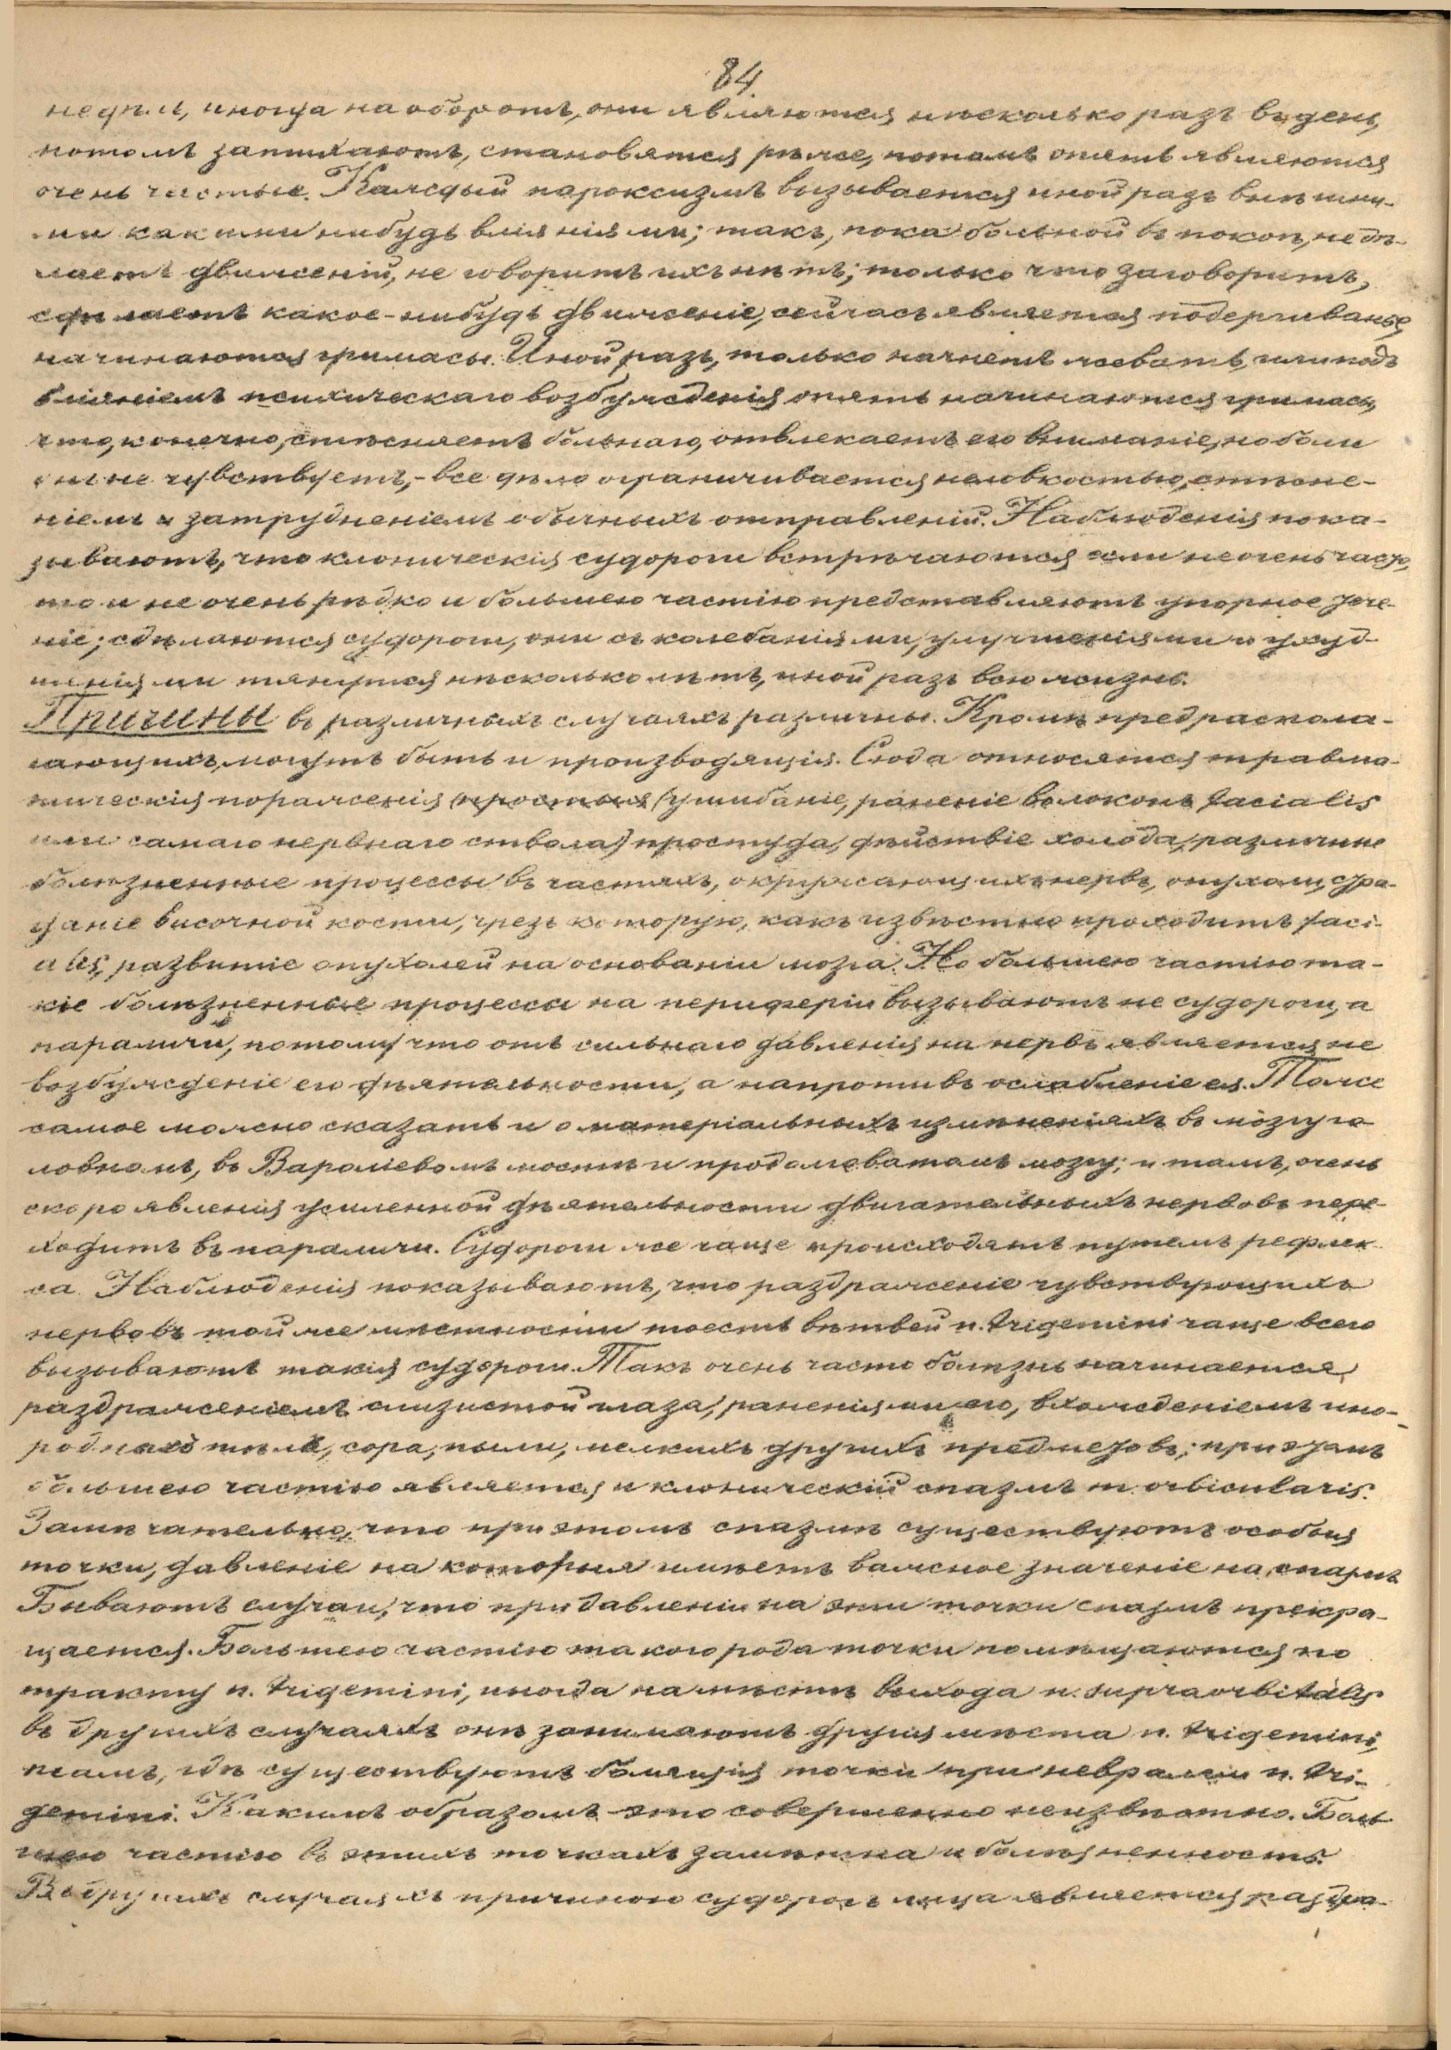 84.
недѣли, иногда на оборотъ, они являются нѣсколько разъ въ день,
потомъ затихаютъ, становятся рѣже, потомъ опять являются
очень частые. Каждый пароксизмъ вызывается иной разъ внѣшни-
ми какими нибудь вліяніями; такъ, пока больной въ покоѣ, не дѣ-
лаетъ движеній, не говоритъ ихъ нѣтъ; только что заговоритъ,
сдѣлаетъ какое-нибудь движеніе, сейчасъ является подергиванье,
начинаются гримасы. Иной разъ, только начнетъ жевать, или подъ
вліяніемъ психическаго возбужденія опять начинаются гримасы,
что, конечно, стѣсняетъ больнаго, отвлекаетъ его вниманіе, но боли
онъ не чувствуетъ, - все дѣло ограничивается неловкостью, стѣсне-
ніемъ и затрудненіемъ обычныхъ отправленій. Наблюденія пока-
зываютъ, что клоническія судороги встрѣчаются если не очень часто,
то и не очень рѣдко и большею частію представляютъ упорное тече-
ніе; сдѣлаются судороги, они съ колебаніями, улучшеніями и ухуд-
шеніями тянутся нѣсколько лѣтъ, иной разъ всю жизнь.
Причины въ различныхъ случаяхъ различны. Кромѣ предраспола-
гающихъ, могутъ быть и производящія. Сюда относятся травма-
тическія пораженія (простыя) (ушибаніе, раненіе волоконъ facialis
или самаго нервнаго ствола) простуда, дѣйствіе холода, различные
болѣзненные процессы въ частяхъ, окружающихъ нервъ, опухоли, стра-
даніе височной кости, чрезъ которую, какъ извѣстно проходитъ faci-
alis, развитіе опухолей на основаніи мозга. Но большею частію та-
кіе болѣзненные процессы на периферіи вызываютъ не судороги, а
параличи, потому что отъ сильнаго давленія на нервъ является не
возбужденіе его дѣятельности, а напротивъ ослабленіе ея. Тоже
самое можно сказать и о матеріальныхъ измѣненіяхъ въ мозгу го-
ловномъ, въ Вароліевомъ мостѣ и продолговатомъ мозгу; и тамъ, очень
скоро явленія усиленной дѣятельности двигательныхъ нервовъ пере-
ходитъ въ параличи. Судороги же чаще происходятъ путемъ рефлек-
са. Наблюденія показываютъ, что раздраженіе чувствующихъ
нервовъ той же мѣстности тоесть вѣтвей n. trigemini чаще всего
вызываютъ такія судороги. Такъ очень часто болѣзнь начинается
раздраженіемъ слизистой глаза, раненіями его, вхожденіемъ ино-
родныхъ тѣлъ, сора, пыли, мелкихъ другихъ предметовъ; при этомъ
большею частію является и клоническій спазмъ m. orbicularis.
Замѣчательно, что при этомъ спазмѣ существуютъ особыя
точки, давленіе на которыя имѣетъ важное значеніе на спазмъ
Бываютъ случаи, что при давленіи на эти точки спазмъ прекра-
щается. Большею частію такого рода точки помѣщаются по
тракту n. trigemini, иногда на мѣстѣ выхода n. supraorbitalis
въ другихъ случаяхъ онѣ занимаютъ другія мѣста n. trigemini,
тамъ, гдѣ существуютъ болящія точки при невралгіи n. tri-
gemini. Какимъ образомъ - это совершенно неизвѣстно. Боль-
шею частію въ этихъ точкахъ замѣтна и болѣзненность.
Въ другихъ случаяхъ причиною судорогъ лица является раздра-